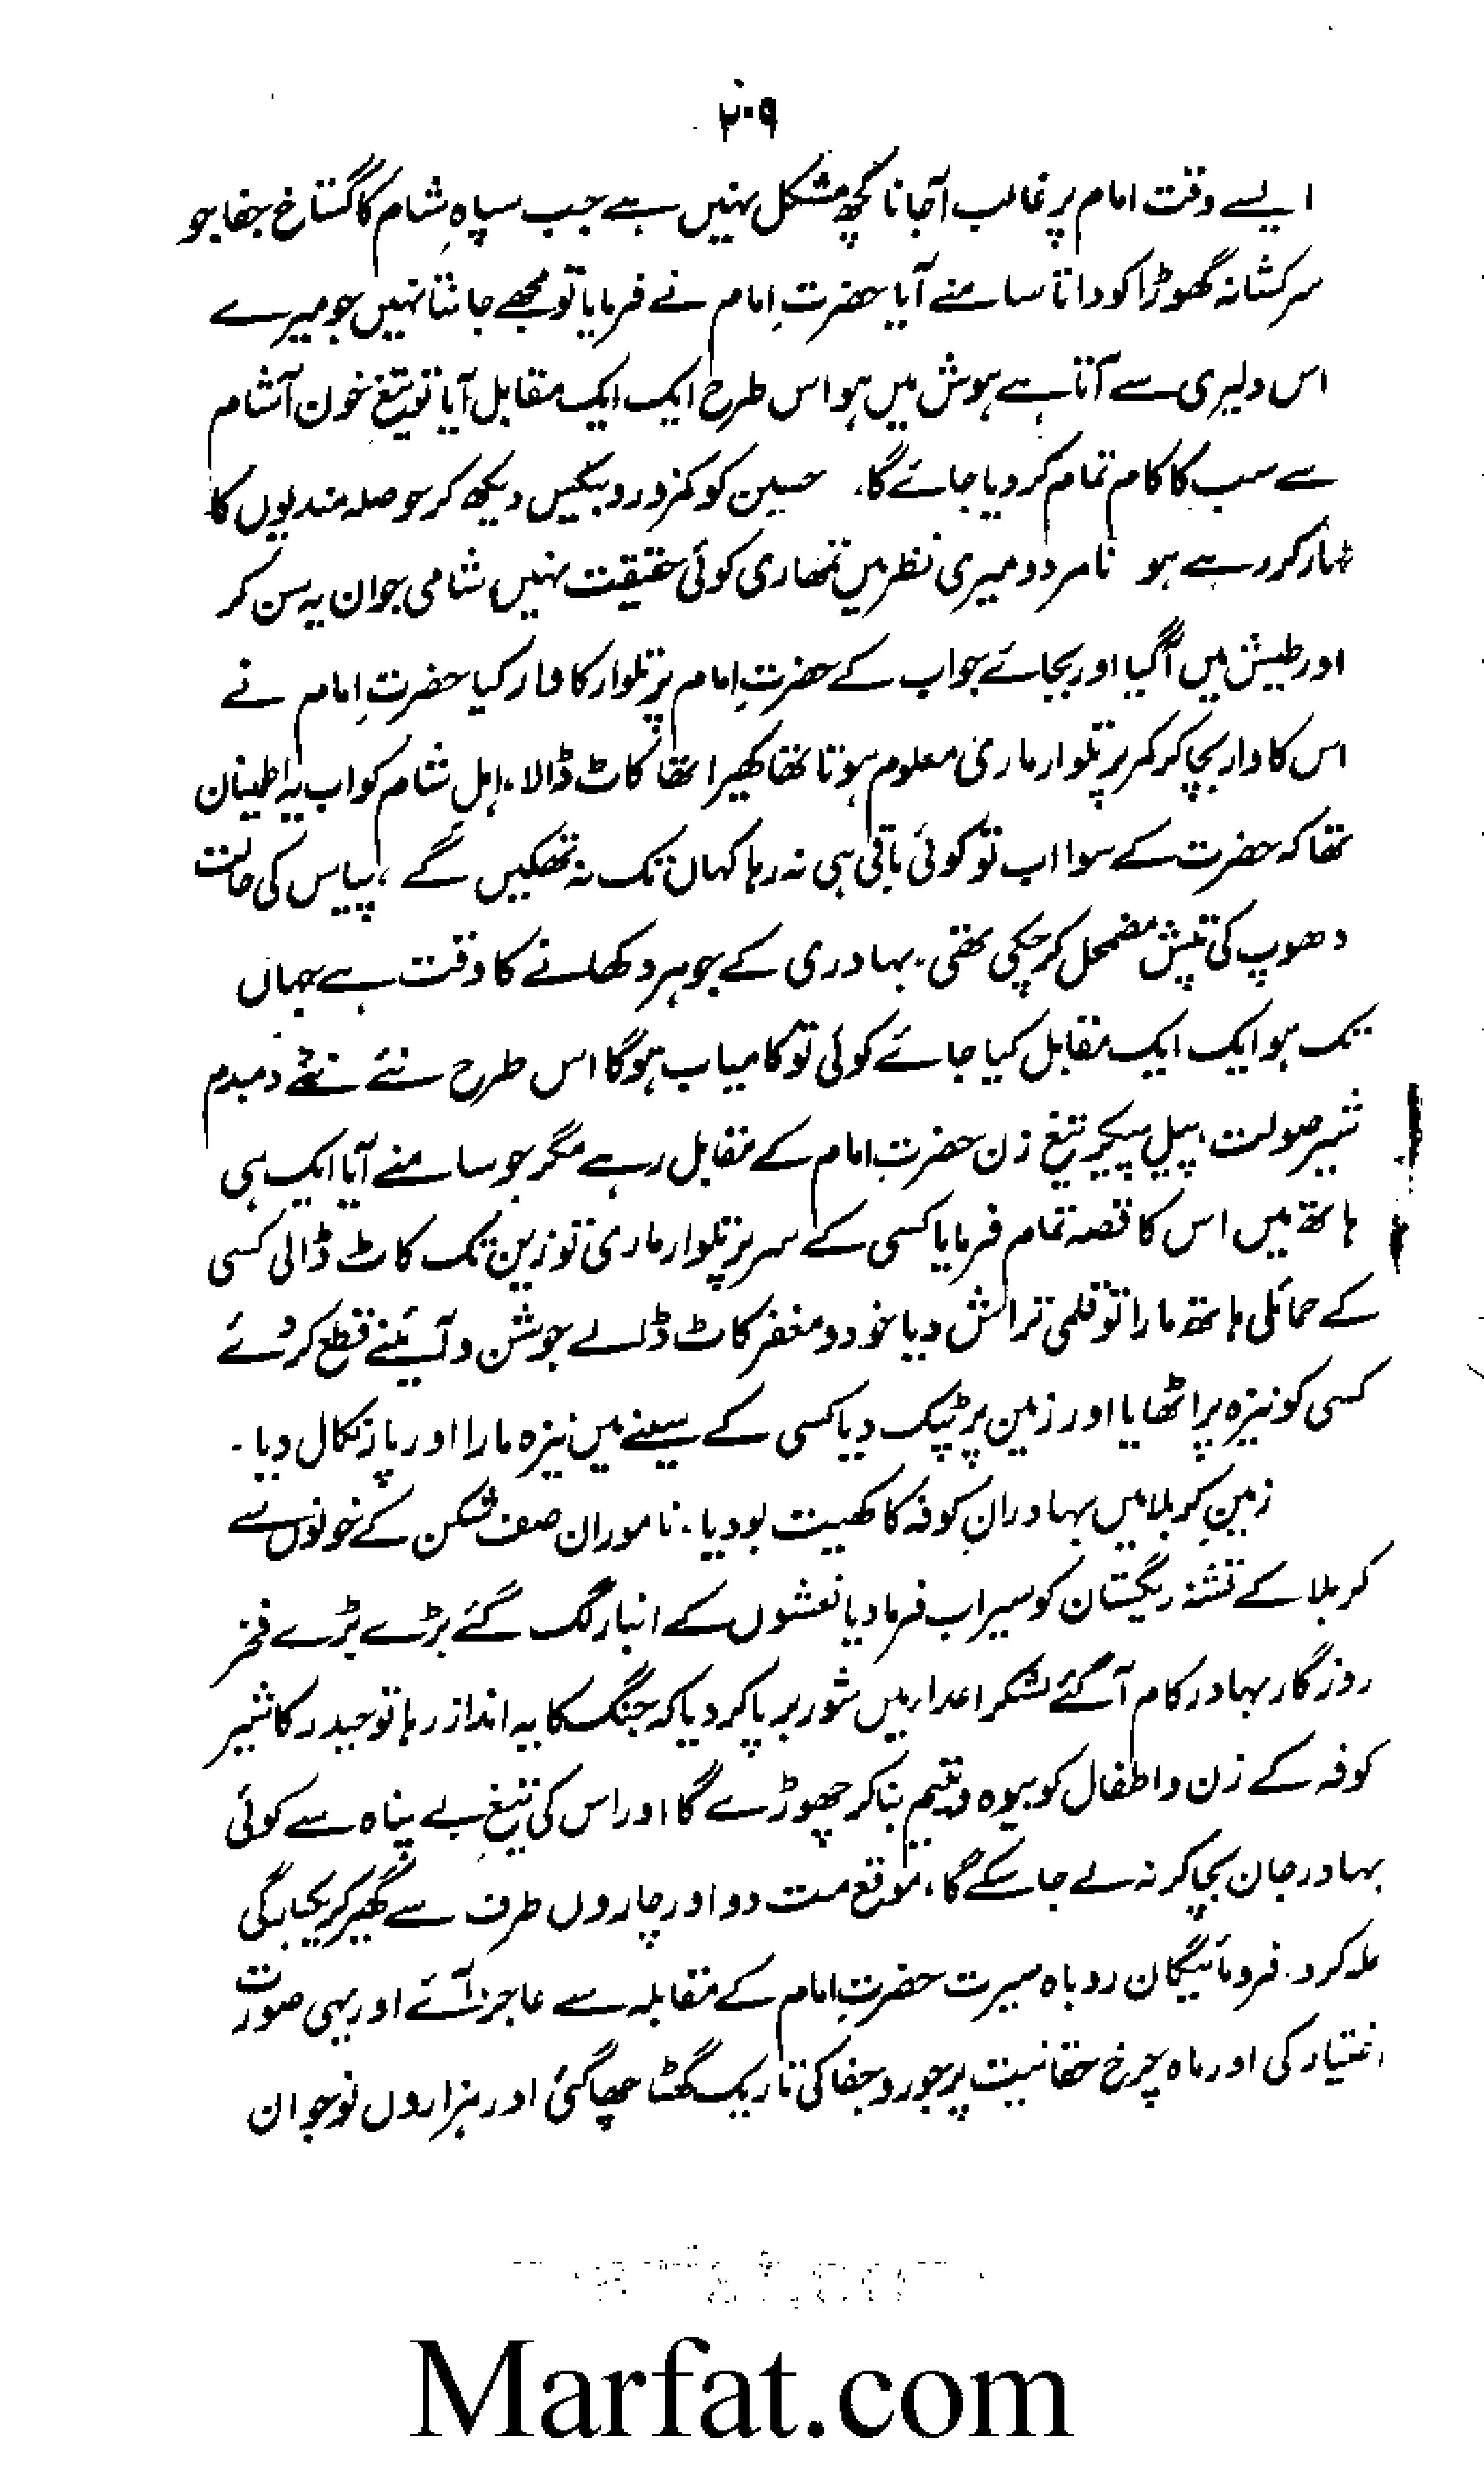 ۲۰۹
ایسے وقت امام پر غالب آجانا کچھ مشکل نہیں ہے جب سپاہِ شام کا گستاخ جفاجو
سرکشانہ گھوڑا کوداتا سامنے آیا حضرتِ امام نے فرمایا تو مجھے جانتا نہیں جو میرے
اس دلیری سے آتا ہے ہوش میں ہو اس طرح ایک ایک مقابل آیا تو تیغِ خون آشام
سے سب کا کام تمام کر دیا جائے گا، حسین کو کمزور و بیکس دیکھ کر حوصلہ مندیوں کا
ظہار کر رہے ہو نامردو میری نظر میں تمھاری کوئی حقیقت نہیں شامی جوان یہ سن کر
اور طیش میں آگیا اور بجائے جواب کے حضرتِ امام پر تلوار کا وار کیا حضرتِ امام نے
اس کا وار بچا کر کمر پر تلوار ماری معلوم ہوتا تھا کھیرا تھا کاٹ ڈالا۔ اہلِ شام کو اب یہ اطمینان
تھا کہ حضرت کے سوا اب تو کوئی باقی ہی نہ رہا کہاں تک نہ تھکیں گے، پیاس کی حالت
دھوپ کی تپش مضمحل کر چکی تھی۔ بہادری کے جوہر دکھلانے کا وقت ہے جہاں
تک ہو ایک ایک مقابل کیا جائے کوئی تو کامیاب ہوگا اس طرح نئے نئے دمبدم
شیر صولت، پیل پیکر تیغ زن حضرتِ امام کے مقابل رہے مگر جو سامنے آیا ایک ہی
ہاتھ میں اس کا قصہ تمام فرمایا کسی کے سر پر تلوار ماری تو زین تک کاٹ ڈالی کسی
کے حمائلی ہاتھ مارا تو قلمی تراش دیا خود و مغفر کاٹ ڈالے جوشن و آئینے قطع کر دئے
کسی کو نیزہ پر اٹھایا اور زمین پر ٹپک دیا کسی کے سینے میں نیزہ مارا اور پار نکال دیا۔
زمینِ کربلا میں بہادرانِ کوفہ کا کھیت بو دیا۔ ناموران صف شکن کے خونوں سے
کربلا کے تشنہ ریگستان کو سیراب فرما دیا نعشوں کے انبار لگ گئے بڑے بڑے فخرِ
روزگار بہادر کام آگئے لشکر اعداء میں شور برپا کر دیا کہ جنگ کا یہ انداز رہا تو حیدر کا شیر
کوفہ کے زن و اطفال کو بیوہ و یتیم بنا کر چھوڑے گا اور اس کی تیغِ بے پناہ سے کوئی
بہادر جان بچا کر نہ لے جا سکے گا، موقع مت دو اور چاروں طرف سے گھیر کر یکبارگی
ملہ کرو۔ فرومائیگان روباہ سیرت حضرتِ امام کے مقابلہ سے عاجز آئے اور یہی صورت
اختیار کی اور ماہ چرخ حقانیت پر جور و جفا کی تاریک گھٹا چھا گئی اور ہزاروں نوجوان
Marfat.com